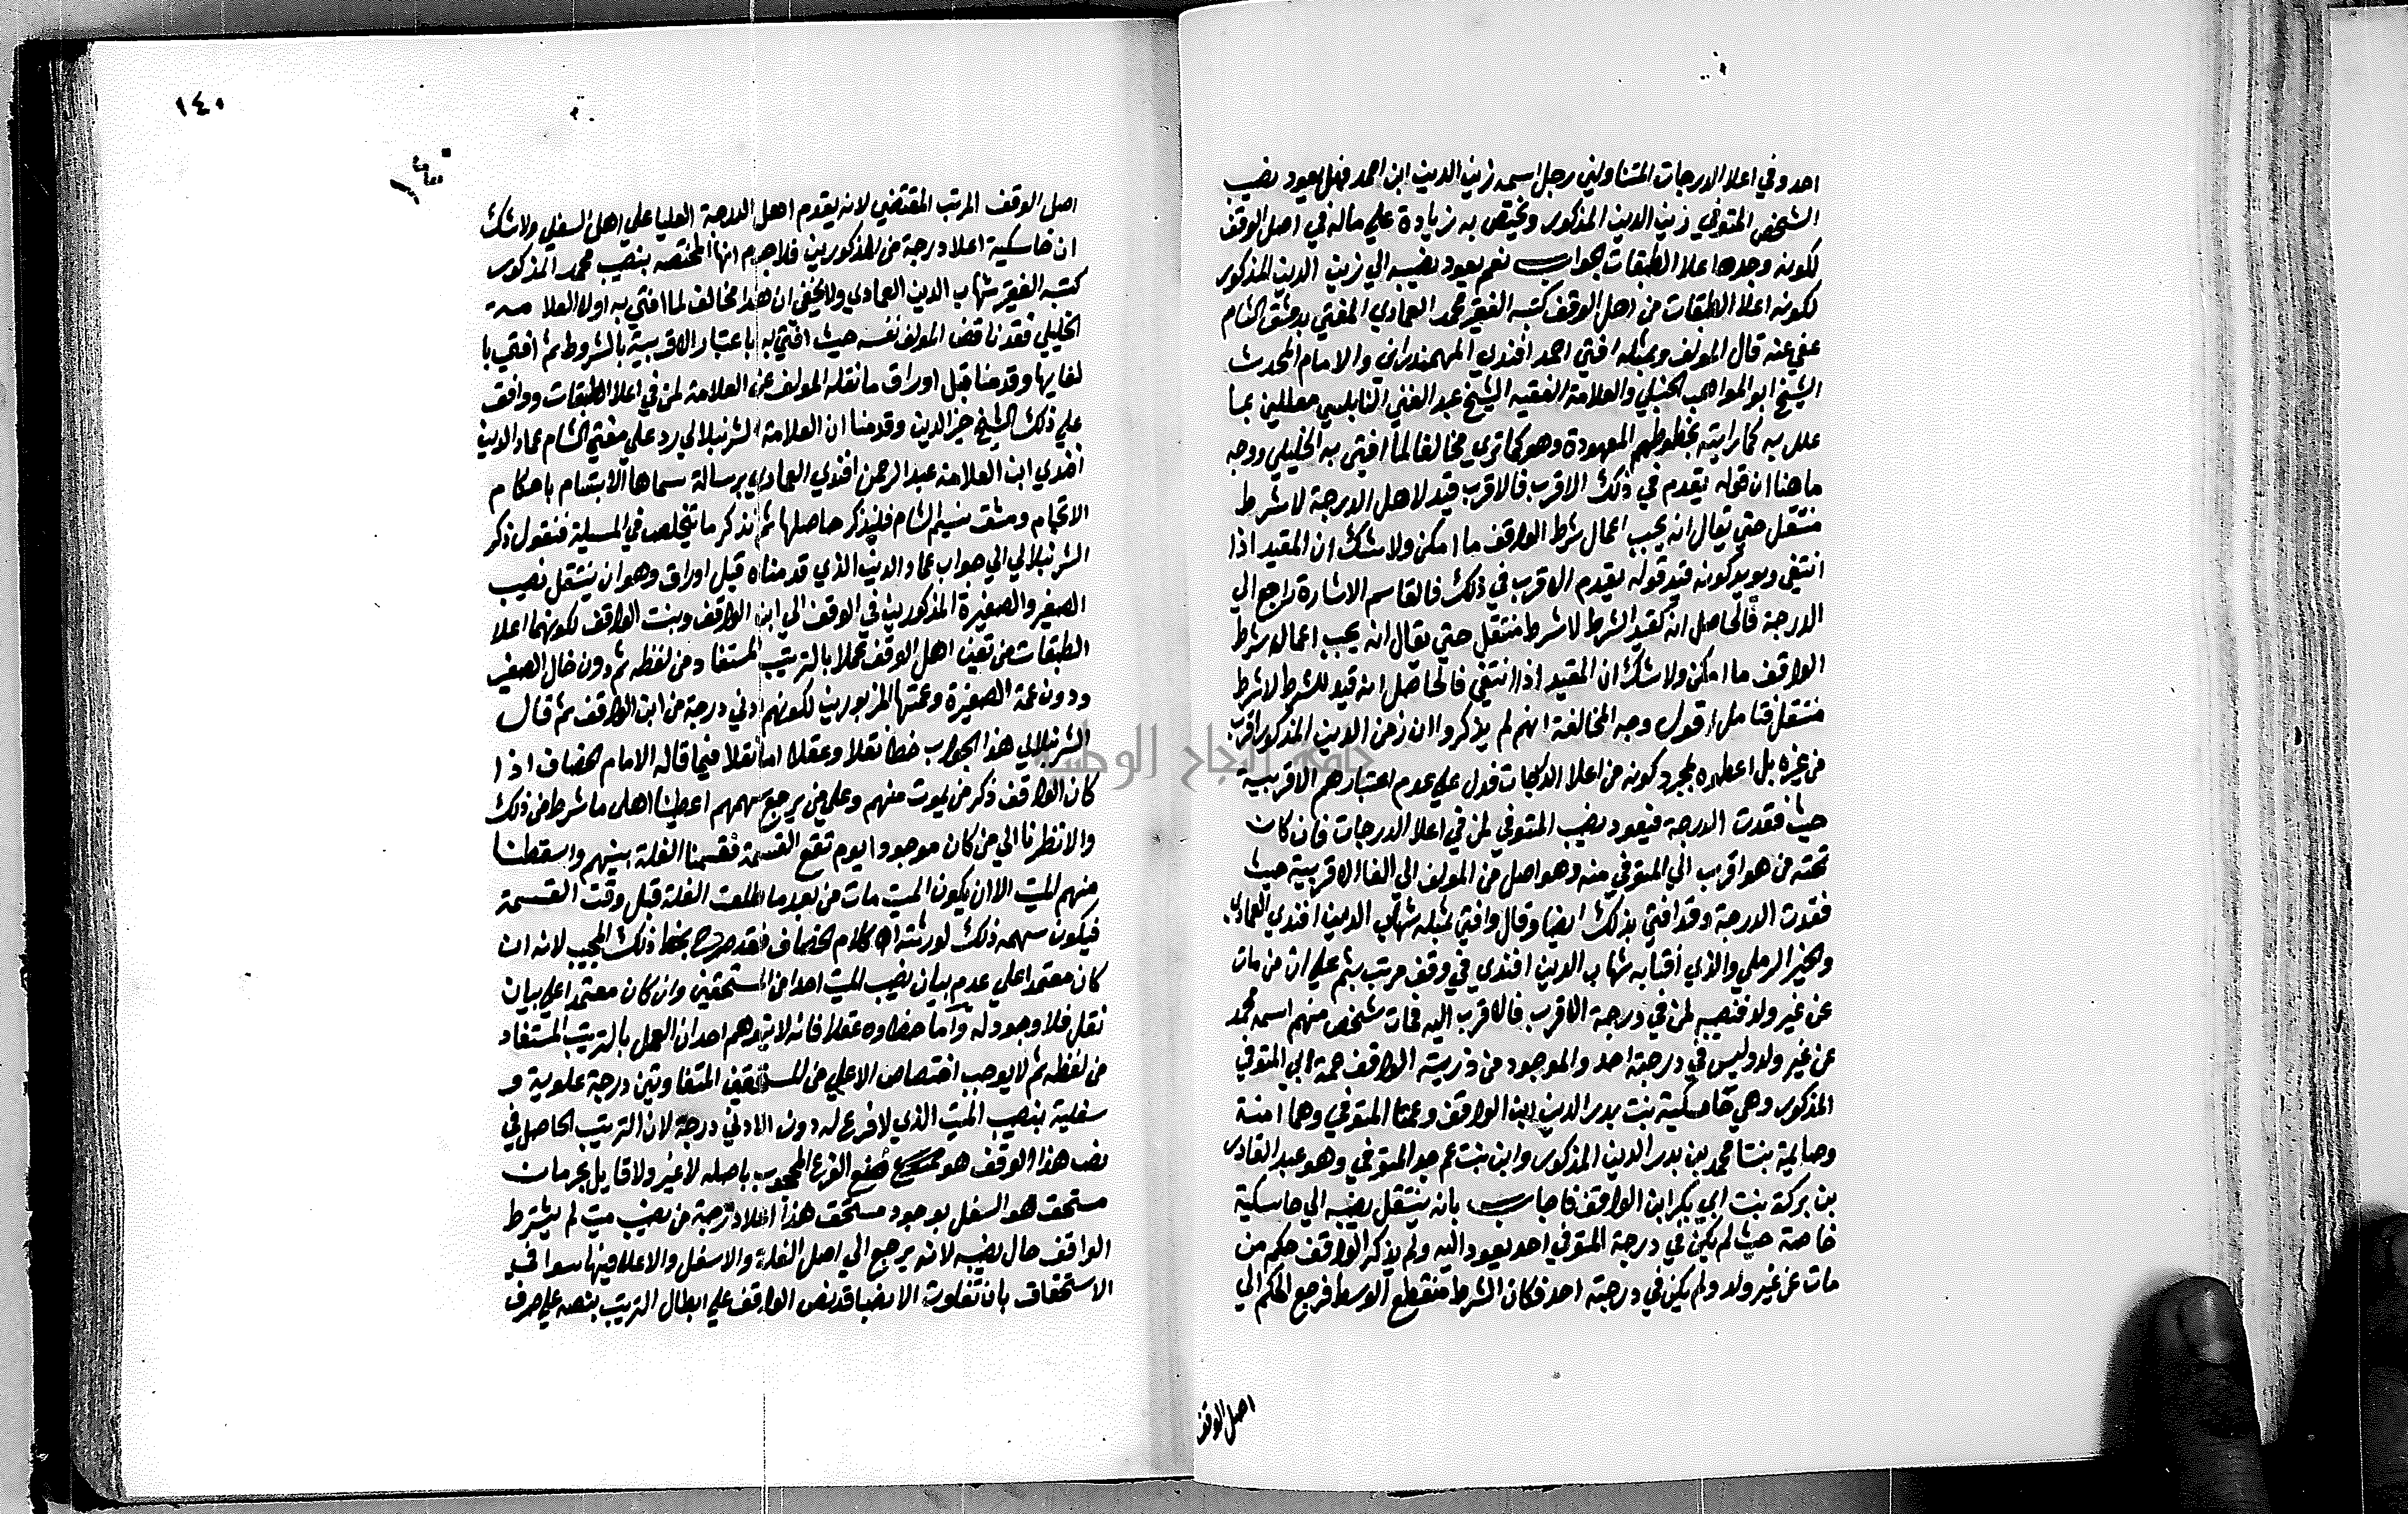 احد وفي اعلا الدرجات المتناولين رجل اسمه زين الدين ابن احمد فهل يعود نصيب
الشخص المتوفي زين الدين المذكور ويختص به زيادة علي ماله في اصل الوقف
لكونه وجدها اعلا الطبقات جواب نعم يعود نصيبه الي زين الدين المذكور
لكونه اعلا الطبقات من اهل الوقف كتبه الفقير محمد العمادي المفتي بدمشق الشام
عفي عنه قال المولف وبمثله افتي احمد افندي المهمنداري والامام المحدث
الشيخ ابو المواهب الحنبلي والعلامة الفقيه الشيخ عبد الغني النابلسي معللين بما
علل به كما رايته بخطوطهم المعهودة وهو كما تري مخالفا لما افتي به الخليلي ووجه
ما هنا ان قوله يقدم في ذلك الاقرب فالاقرب قيد لاهل الدرجة لا شرط
منتقل حتي يقال انه يجب اعمال شرط الواقف ما امكن ولا شك ان المقيد اذا
انتفي ويويد كونه قيد قوله يقدم الاقرب في ذلك فالقاسم الاشارة راجع الي
الدرجة فالحاصل انه كقيد الشرط لا شرط منتقل حتي يقال انه يجب اعمال شرط
الواقف ما امكن ولا شك ان المقيد اذا انتفي فالحاصل انه قيد للشرط لا شرط
منتقل فتامل اقول وجه المخالفة انهم لم يذكروا ان زين الدين المذكور اقرب
من غيره بل اعطوه بمجرد كونه من اعلا الدرجات فدل علي عدم اعتبارهم الاقربية
حيث فقدت الدرجة فيعود نصيب المتوفي لمن في اعلا الدرجات فان كان
تحته من هو اقرب الي المتوفي منه وهو اصل من المولف الي الغا الاقربية حيث
فقدت الدرجة وقد افتي بذلك ايضا وقال وافتي بمثله شهاب الدين افندي العمادي
والخير الرملي والذي افتا به شهاب الدين افندي في وقف مرتب بثم علي ان من مات
عن غير ولد فنصيبه لمن في درجة الاقرب فالاقرب اليه فمات شخص منهم اسمه محمد
عن غير ولد وليس في درجته احد والموجود من ذرية الواقف عمة ابي المتوفي
المذكور وهي خاسكية بنت بدر الدين ابن الواقف وعمتا المتوفي وهما امنة
وصالحية بنتا محمد بن بدر الدين المذكور وابن بنت عم جد المتوفي وهو عبد القادر
بن بركة بنت ابي بكر ابن الواقف فاجاب بانه ينتقل نصيبه الي خاسكية
خاصة حيث لم يكن في درجة المتوفي احد يعود اليه ولم يذكر الواقف حكم من
مات عن غير ولد ولم يكن في درجته احد فكان الشرط منقطع الوسط فرجع الحكم الي
اصل الوقف
١٤٠
١٤٠
اصل الوقف المرتب المقتضي لانه يقدم اهل الدرجة العليا علي اهل السفلي ولا شك
ان خاسكية اعلا درجة من المذكورين فلا جرم انها المختصه بنصيب محمد المذكور
كتبه الفقير شهاب الدين العمادي ولا يخفي ان هذا مخالف لما افتي به اولا العلامة
الخليلي فقد ناقض المولف نفسه حيث افتي به باعتبار الاقربية بالشروط ثم افتي با
لغايها وقدمنا قبل اوراق ما نقله المولف عن العلامة لمن في اعلا الطبقات ووافق
علي ذلك الشيخ خير الدين وقدمنا ان العلامة الشرنبلالي رد علي مفتي الشام عماد الدين
افندي ابن العلامة عبد الرحمن افندي العمادي برسالة سماها الابتسام باحكام
الافحام ونشق نسيم الشام فلنذكر حاصلها ثم نذكر ما يتخلص في المسيلة فنقول ذكر
الشرنبلالي الي جواب عماد الدين الذي قدمناه قبل اوراق وهو ان ينتقل نصيب
الصغير والصغيرة المذكورين في الوقف الي ابن الواقف وبنت الواقف لكونهما اعلا
الطبقات من بقية اهل الوقف عملا بالترتيب المستفاد من لفظه ثم دون خال الصغير
ودون عمة الصغيرة وعمتها المزبورين لكونهم ادني درجة من ابن الواقف ثم قال
الشرنبلالي هذا الجواب خطا نقلا وعقلا اما نقلا فيما قاله الامام الخصاف اذا
كان الواقف ذكر من يموت منهم وعلي من يرجع سهمهم اعطينا اهل ما شرط من ذلك
والا نظرنا الي من كان موجودا يوم تقع القسمة فقسمنا الغلة بينهم واسقطنا
منهم الميت الا ان يكون الميت مات من بعد ما طلعت الغلة قبل وقت القسمة
فيكون سهمه ذلك لورثته اه كلام الخصاف فقد صرح بخطا ذلك المجيب لانه ان
كان معتمدا علي عدم بيان نصيب الميت احدا من المستحقين وان كان معتمدا علي بيان
نقل فلا وجود له واما خطاوه عقلا فانه لا يتوهم احد ان العمل بالترتيب المستفاد
من لفظه ثم لا يوجب اختصاص الاعلي من المستحقين المتفاوتين درجة علوية و
سفلية بنصيب الميت الذي لا فرع له دون الادني درجة لان الترتيب الحاصل في
نص هذا الوقف هو منع الفرع المحجوب باصله لا غير ولا قايل بحرمان
مستحق هو السفل بوجود مستحق هذا اعلا درجة من نصيب ميت لم يشترط
الواقف حال نصيبه لانه يرجع الي اصل الغلة والاسفل والاعلا فيها سوا في
الاستحقاق بان تفاوت الانصبا قد نص الواقف علي ابطال الترتيب بنصه علي صرف
جامعة النجاح الوطنية